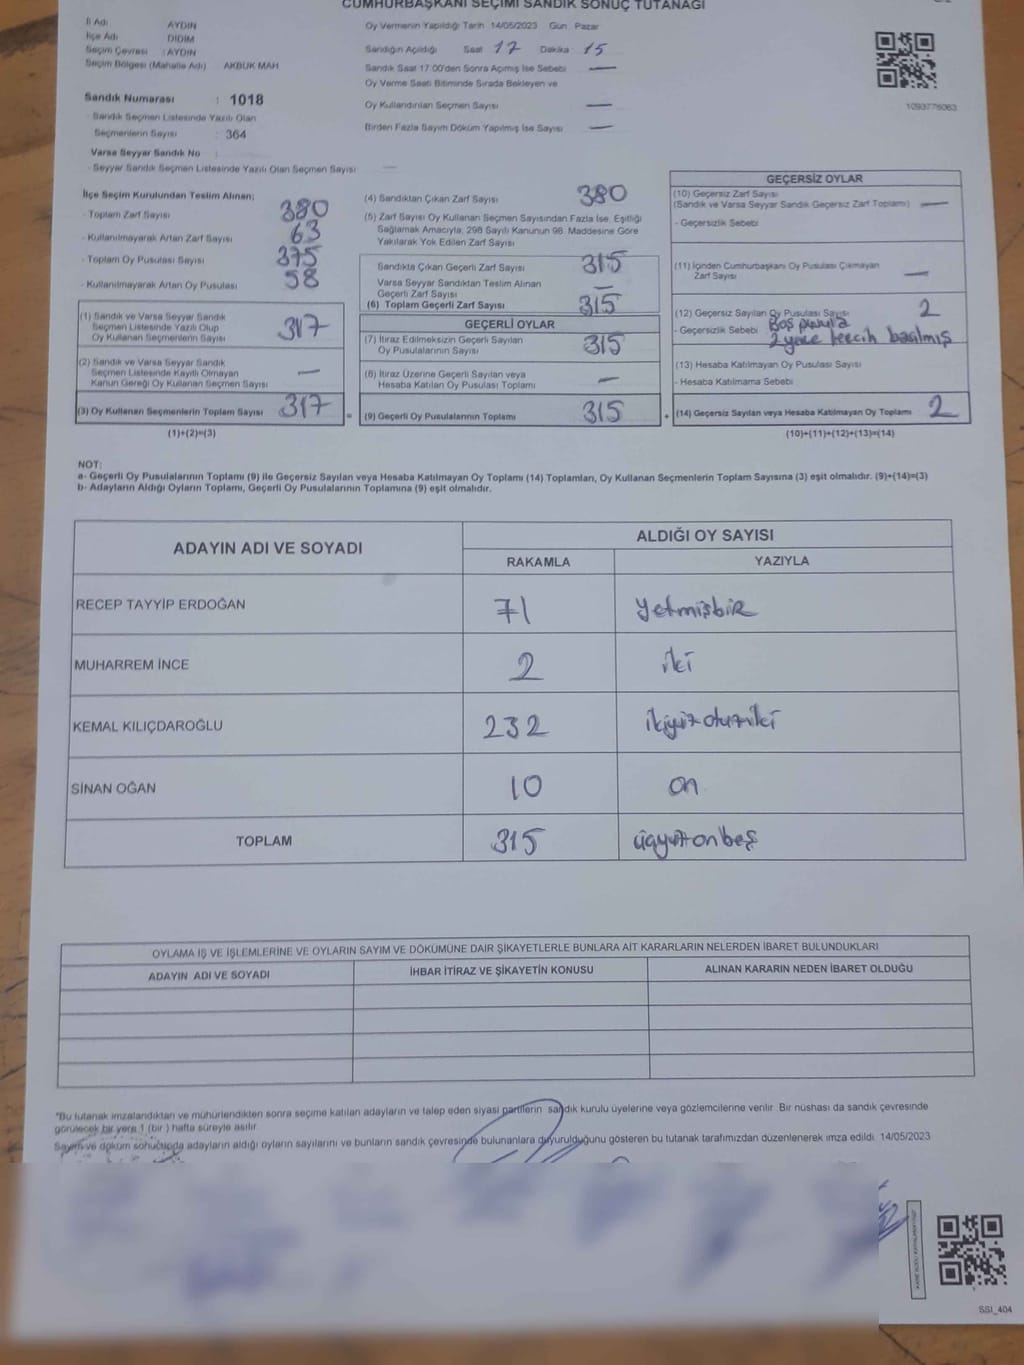 CUMHURBAŞKANI SEÇİMİ SANDIK SONUÇ TUTANAĞI
İl Adı AYDIN
İlçe Adı DİDİM
Seçim Çevresi : AYDIN
Seçim Bölgesi (Mahalle Adı) AKBUK MAH
Sandık Numarası : 1018
- Sandık Seçmen Listesinde Yazılı Olan
Seçmenlerin Sayısı : 364
Varsa Seyyar Sandık No :
- Seyyar Sandık Seçmen Listesinde Yazılı Olan Seçmen Sayısı —
Oy Vermenin Yapıldığı Tarih 14/05/2023 Gün Pazar
Sandığın Açıldığı Saat 17 Dakika 15
Sandık Saat 17:00'den Sonra Açımış İse Sebebi —
Oy Verme Saati Bitiminde Sırada Bekleyen ve
Oy Kullandırılan Seçmen Sayısı —
Birden Fazla Sayım Döküm Yapılmış İse Sayısı —
1093776063
İlçe Seçim Kurulundan Teslim Alınan;
- Toplam Zarf Sayısı 380
- Kullanılmayarak Artan Zarf Sayısı 63
- Toplam Oy Pusulası Sayısı 375
- Kullanılmayarak Artan Oy Pusulası 58
(1) Sandık ve Varsa Seyyar Sandık
Seçmen Listesinde Yazılı Olup
Oy Kullanan Seçmenlerin Sayısı 317
(2) Sandık ve Varsa Seyyar Sandık
Seçmen Listesinde Kayıtlı Olmayan
Kanun Gereği Oy Kullanan Seçmen Sayısı —
(3) Oy Kullanan Seçmenlerin Toplam Sayısı 317 =
(1)+(2)=(3)
(4) Sandıktan Çıkan Zarf Sayısı 380
(5) Zarf Sayısı Oy Kullanan Seçmen Sayısından Fazla İse, Eşitliği
Sağlamak Amacıyla, 298 Sayılı Kanunun 98. Maddesine Göre
Yakılarak Yok Edilen Zarf Sayısı
Sandıkta Çıkan Geçerli Zarf Sayısı 315
Varsa Seyyar Sandıktan Teslim Alınan
Geçerli Zarf Sayısı —
(6) Toplam Geçerli Zarf Sayısı 315
GEÇERLİ OYLAR
(7) İtiraz Edilmeksizin Geçerli Sayılan
Oy Pusulalarının Sayısı 315
(8) İtiraz Üzerine Geçerli Sayılan veya
Hesaba Katılan Oy Pusulası Toplamı —
(9) Geçerli Oy Pusulalarının Toplamı 315 +
GEÇERSİZ OYLAR
(10) Geçersiz Zarf Sayısı
(Sandık ve Varsa Seyyar Sandık Geçersiz Zarf Toplamı) —
- Geçersizlik Sebebi
(11) İçinden Cumhurbaşkanı Oy Pusulası Çıkmayan
Zarf Sayısı —
(12) Geçersiz Sayılan Oy Pusulası Sayısı 2
- Geçersizlik Sebebi Boş pusula
2 yere tercih basılmış
(13) Hesaba Katılmayan Oy Pusulası Sayısı
- Hesaba Katılmama Sebebi
(14) Geçersiz Sayılan veya Hesaba Katılmayan Oy Toplamı 2
(10)+(11)+(12)+(13)=(14)
NOT:
a- Geçerli Oy Pusulalarının Toplamı (9) ile Geçersiz Sayılan veya Hesaba Katılmayan Oy Toplamı (14) Toplamları, Oy Kullanan Seçmenlerin Toplam Sayısına (3) eşit olmalıdır. (9)+(14)=(3)
b- Adayların Aldığı Oyların Toplamı, Geçerli Oy Pusulalarının Toplamına (9) eşit olmalıdır.
ADAYIN ADI VE SOYADI ALDIĞI OY SAYISI
RAKAMLA YAZIYLA
RECEP TAYYİP ERDOĞAN 71 yetmişbir
MUHARREM İNCE 2 iki
KEMAL KILIÇDAROĞLU 232 ikiyüzotuziki
SİNAN OĞAN 10 on
TOPLAM 315 üçyüzonbeş
OYLAMA İŞ VE İŞLEMLERİNE VE OYLARIN SAYIM VE DÖKÜMÜNE DAİR ŞİKAYETLERLE BUNLARA AİT KARARLARIN NELERDEN İBARET BULUNDUKLARI
ADAYIN ADI VE SOYADI İHBAR İTİRAZ VE ŞİKAYETİN KONUSU ALINAN KARARIN NEDEN İBARET OLDUĞU
*Bu tutanak imzalandıktan ve mühürlendikten sonra seçime katılan adayların ve talep eden siyasi partilerin sandık kurulu üyelerine veya gözlemcilerine verilir. Bir nüshası da sandık çevresinde
görülecek bir yere 1 (bir) hafta süreyle asılır.
Sayım ve döküm sonucunda adayların aldığı oyların sayılarını ve bunların sandık çevresinde bulunanlara duyurulduğunu gösteren bu tutanak tarafımızdan düzenlenerek imza edildi. 14/05/2023
SSI_404